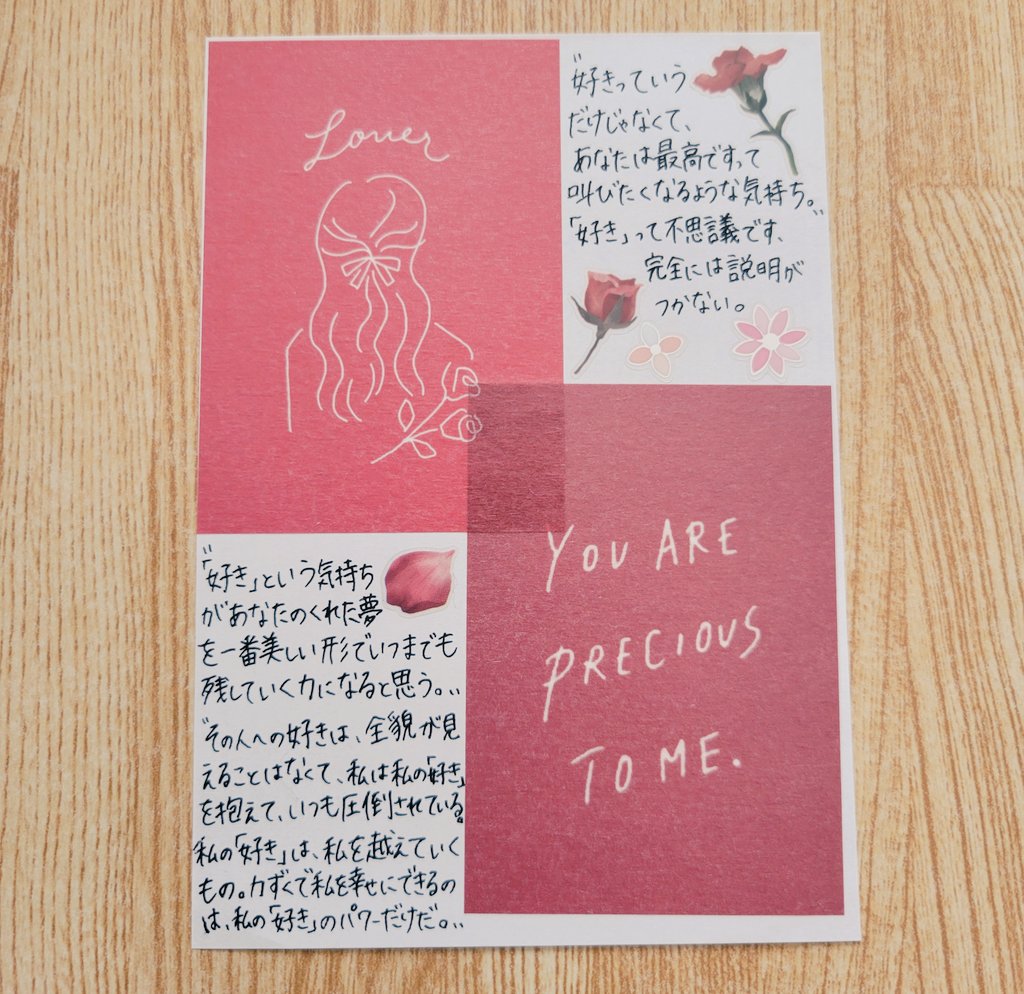 Lover
“好きっていう
だけじゃなくて、
あなたは最高ですって
叫びたくなるような気持ち。”
「好き」って不思議です、
完全には説明が
つかない。
YOU ARE
PRECIOUS
TO ME.
“「好き」という気持ち
があなたのくれた夢
を一番美しい形でいつまでも
残していく力になると思う。”
“その人への好きは、全貌が見
えることはなくて、私は私の「好き」
を抱えて、いつも圧倒されている。
私の「好き」は、私を越えていく
もの。力ずくで私を幸せにできるの
は、私の「好き」のパワーだけだ。”